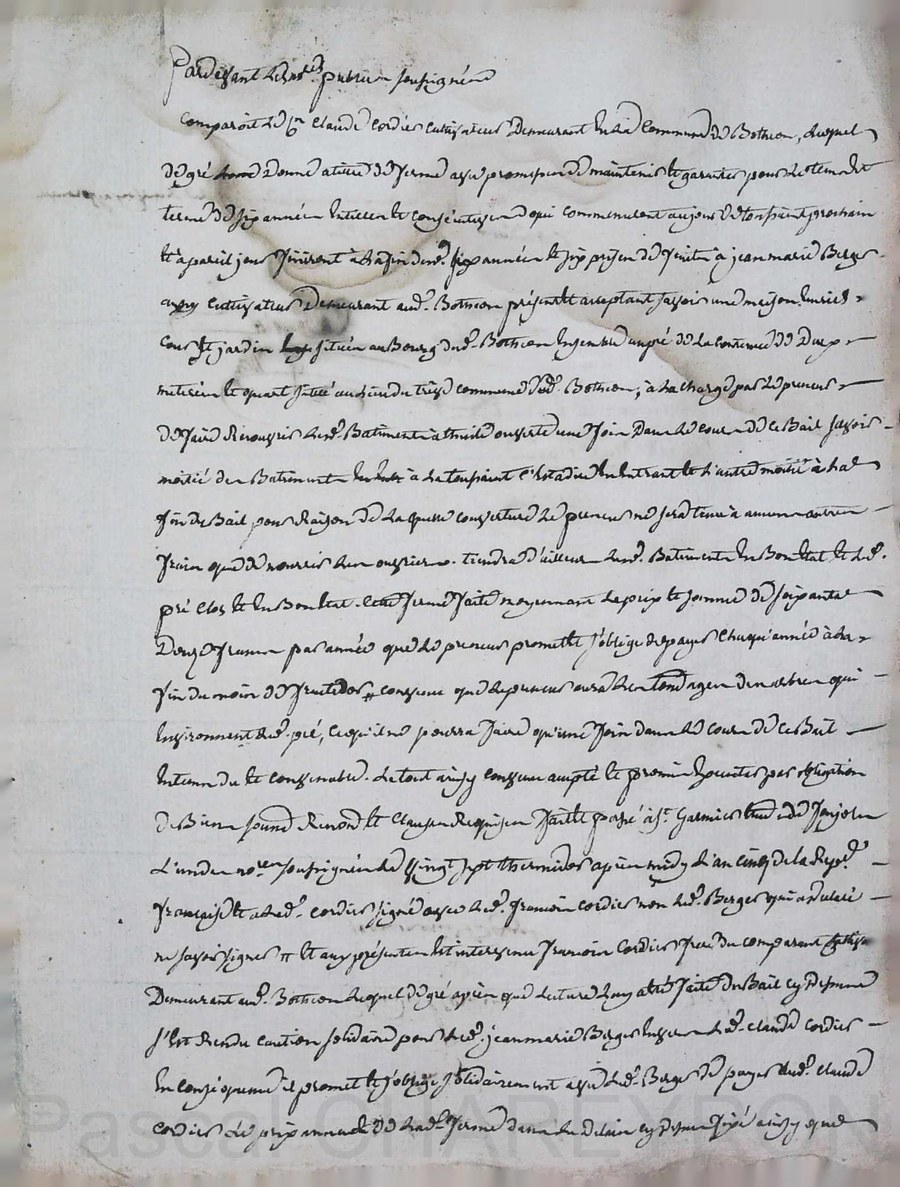 Pardevant les nores publics soussignés
Comparoit le Cn Claude Cordier cultivateur demeurant en la commune de Bothéon, lequel
de gré donne à titre de ferme avec promesse de maintenir et garantir pour le tems et
terme de six années entières et consécutives qui commencent au jour de toussaint prochain
et à pareil jour finiront à la fin desd. six années et six prises de fruits à jean marie Berger
cultivateur demeurant aud. Bothéon présent et acceptant savoir une maison,
cour et jardin situés au Bourg dud. Bothéon ensemble un pré de la contenue de deux
meterées et quart situé au lieu du commune dud. Bothéon, à la charge par le preneur
de faire recouvrir lesd. Batiments à thuile ouverte une foin dans le cours de ce Bail savoir
moitié des Batiments à la toussaint c'est à dire en entrant et l'autre moitié à la
fin du Bail, pour Raison de laquelle couverture le preneur ne sera tenu à aucuns autres
frais que de nourrir les ouvriers, tiendra d'ailleurs lesd. Batiments en Bon Etat et led.
pré clos et en Bon Etat. Cette ferme faite moyennant le prix et somme de soixante
Douze francs par année que le preneur promet et s'oblige de payer chaqu'année à la
fin du mois de fructidor, convenu que le preneur aura les tondages des arbres qui
environnent led. pré, ce qu'il ne pourra faire qu'une foin dans le cours de ce Bail
Entendu et convenable. Le tout ainsy convenu accepté et promis Executer par obligation
de Biens soumis Renond et clauses Requises fait et passé à St. Garmier Etude de
L'un des nores soussignés le vingt sept thermidor après midy l'an cinq de la Repe.
française et a led. Cordier signé avec led. françois Cordier non led. Berger qui a déclaré
ne savoir signer et aux présentes est intervenu françois Cordier frère du comparant
Demeurant aud. Bothéon lequel de gré après que lecture luy a été faite du Bail cy dessus
s'est Rendu caution solidaire pour led. jean marie Berger envers led. claude Cordier
En conséquence il promet et s'oblige solidairement avec led. Berger de payer aud. claude
Cordier le prix annuel de lad. ferme dans les délais cy dessus fixé ainsy que
Pascal CHAREYRON